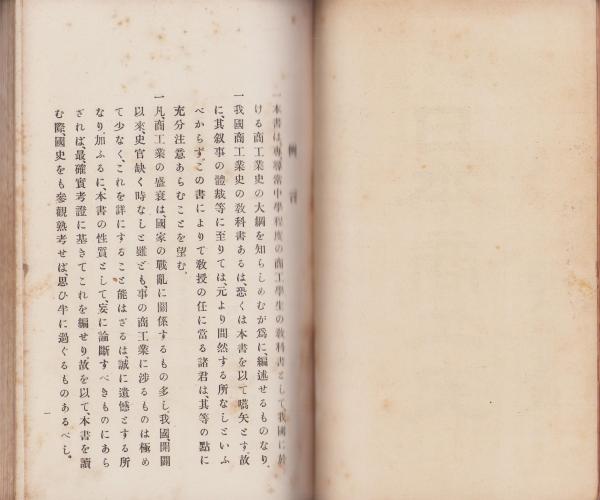 例言
一本書は専尋常中學程度の商工學生の教科書として我國に於
ける商工業史の大綱を知らしめむが爲に、編述せるものなり、
一我國商工業史の教科書あるは、恐くは本書を以て嚆矢とす、故
に、其叙事の體裁等に至りては、元より間然する所なしといふ
べからず、この書によりて教授の任に當る諸君は、其等の點に
充分注意あらむことを望む、
一凡、商工業の盛衰は國家の戰亂に關係するもの多し、我國、開闢
以來、史官缺く時なしと雖ども、事の商工業に渉るものは極め
て少なく、これを詳にすること能はざるは、誠に遺憾とする所
なり、加ふるに、本書の性質として、妄に論斷すべきものにあら
ざれば、最、確實考證に基きてこれを編せり、故を以て、本書を讀
む際、國史をも參觀熟考せば、思ひ半に過ぐるものあるべし、
一